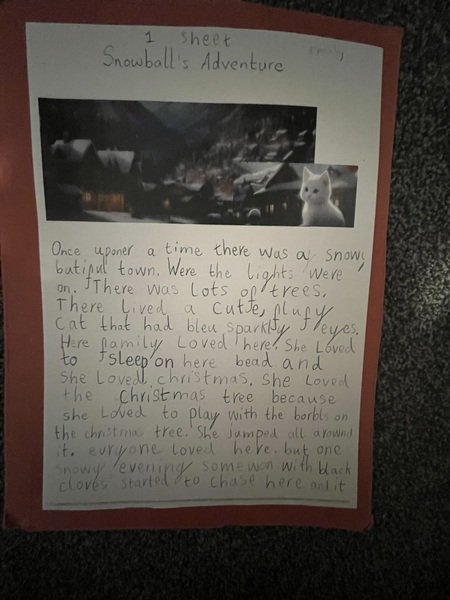 1 sheet
Snowball's Adventure
Once uponer a time there was a snowy
butiful town. Were the lights were
on. There was lots of trees.
There lived a cutte, flufy
cat that had bleu sparkly eyes.
Here family loved here. She loved
to sleep on here bead and
she loved christmas. She loved
the christmas tree because
she loved to play with the borbls on
the christmas tree. She jumped all around
it. euryone loved here. but one
snowy evening somewon with black
cloves started to chase here and it